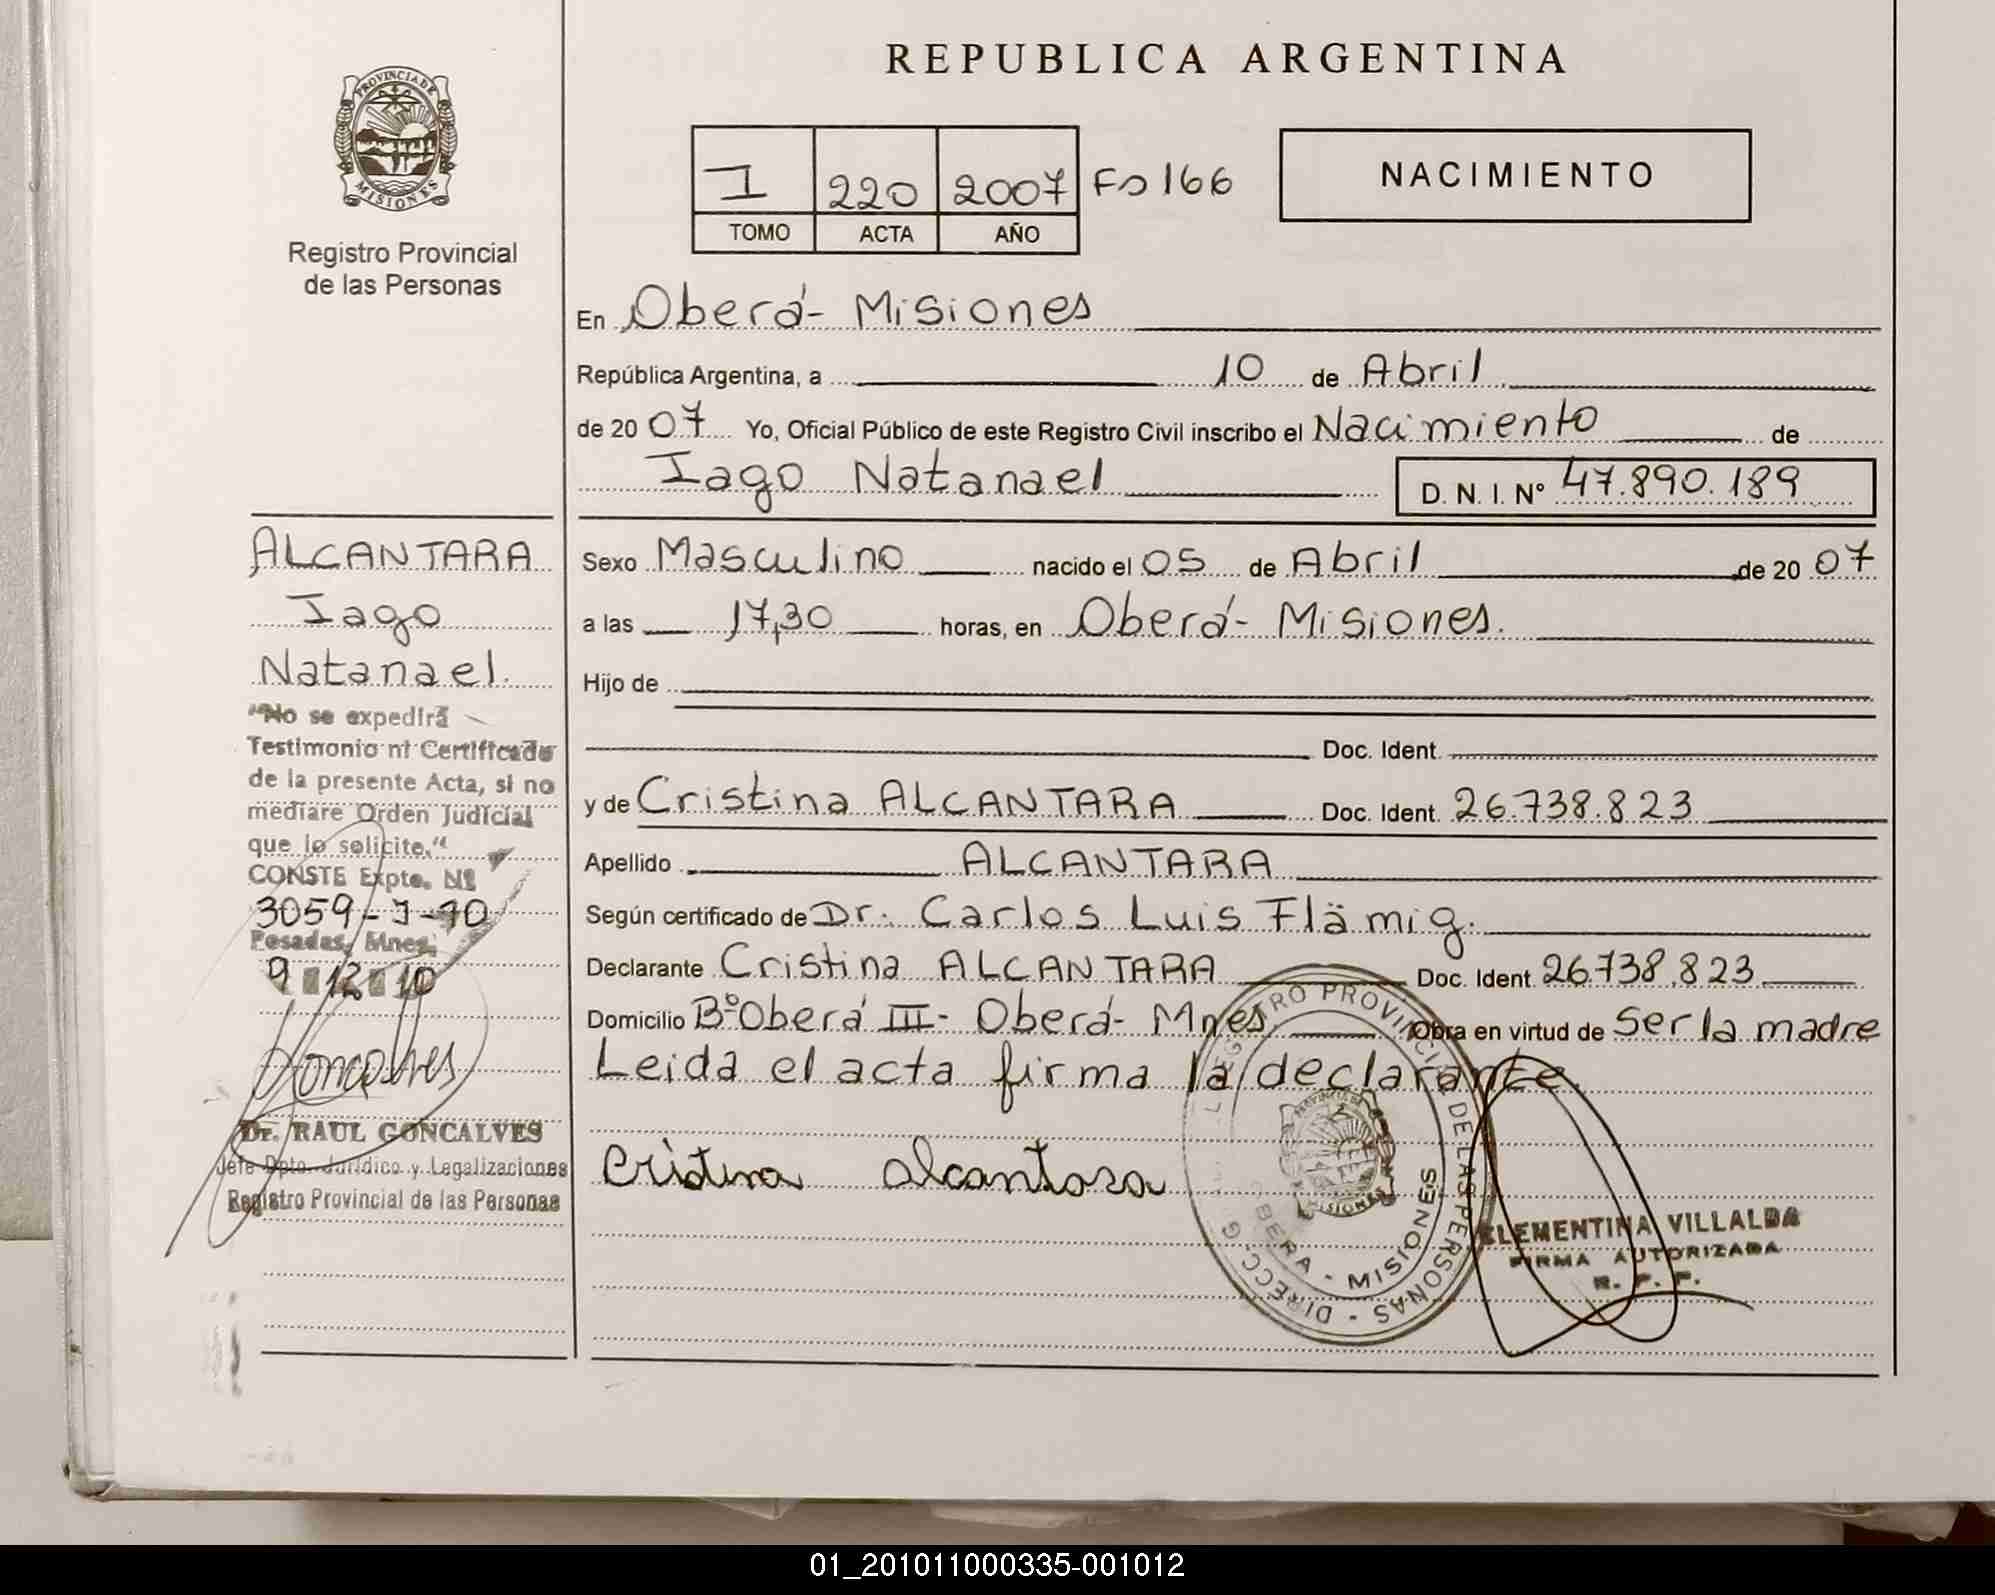 REPUBLICA ARGENTINA
PROVINCIA DE MISIONES
Registro Provincial
de las Personas
I 220 2007 Fo 166
TOMO ACTA AÑO
NACIMIENTO
En Oberá- Misiones
República Argentina, a 10 de Abril
de 2007 Yo, Oficial Público de este Registro Civil inscribo el Nacimiento de
Iago Natanael D. N. I. Nº 47.890.189
Sexo Masculino nacido el 05 de Abril de 2007
a las 17,30 horas, en Oberá- Misiones.
Hijo de
Doc. Ident.
y de Cristina ALCANTARA Doc. Ident. 26.738.823
Apellido ALCANTARA
Según certificado de Dr. Carlos Luis Flämig.
Declarante Cristina ALCANTARA Doc. Ident. 26.738.823
Domicilio Bº Oberá III- Oberá- Mnes. Obra en virtud de ser la madre
Leida el acta firma la declarante.
Cristina Alcantara
ALCANTARA
Iago
Natanael.
"No se expedirá
Testimonio ni Certificado
de la presente Acta, si no
mediare Orden Judicial
que lo solicite."
CONSTE Expte. Nº
3059-J-10
Posadas, Mnes.
9 12 10
Goncalves
Dr. RAUL GONCALVES
Jefe Dpto. Jurídico y Legalizaciones
Registro Provincial de las Personas
REGISTRO PROVINCIAL DE LAS PERSONAS - DIRECC. G
OBERA - MISIONES
CLEMENTINA VILLALBA
FIRMA AUTORIZADA
R. P. P.
01_201011000335-001012